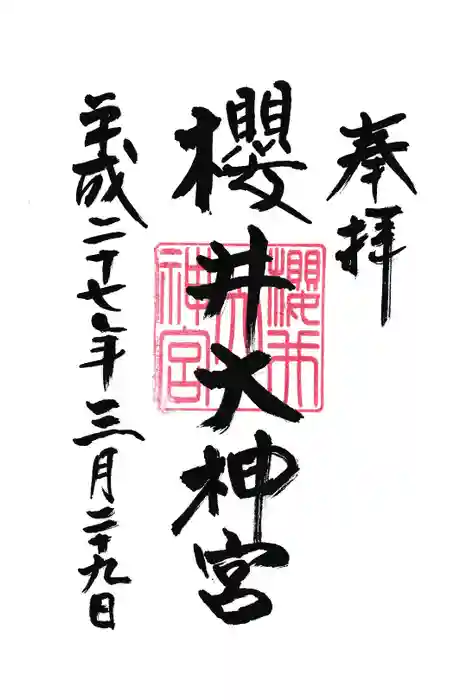 奉拝
櫻井大神宮
平成二十七年三月二十九日